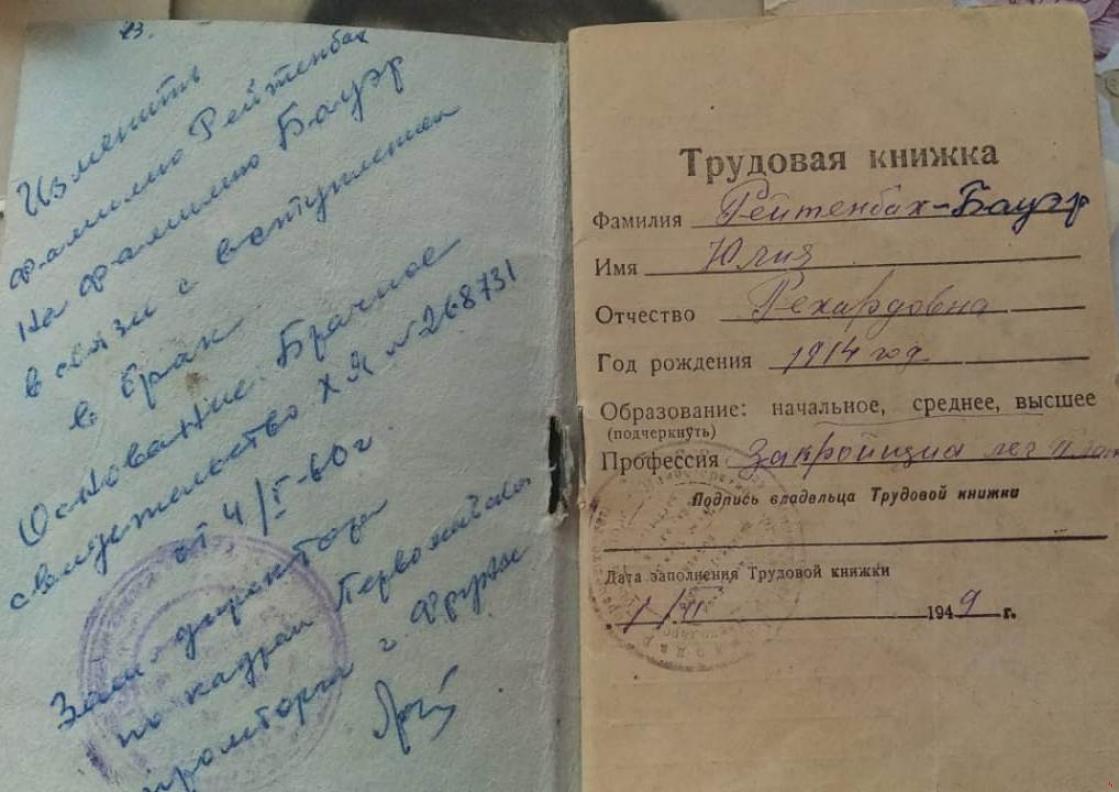 Изменить
фамилию Рейтенбах
на фамилию Бауэр
в связи с вступлением
в брак.
Основание: Брачное
свидетельство ХЯ №268731
от 4/V-60г.
Зам. директора
по кадрам Первомайского
промторга г. Фрунзе
Трудовая книжка
Фамилия Рейтенбах-Бауэр
Имя Юлия
Отчество Рехардовна
Год рождения 1914 год
Образование: начальное, среднее, высшее
(подчеркнуть)
Профессия Закройщица лег
Подпись владельца Трудовой книжки
Дата заполнения Трудовой книжки
1949 г.